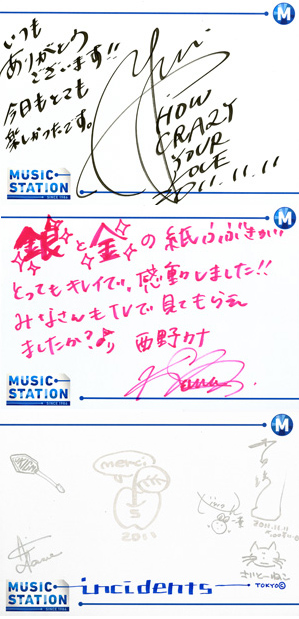 いつも
ありがとう
ございます!!
今日もとても
楽しかったです。
yui
HOW
CRAZY
YOUR
LOVE
'11.11.11
MUSIC
STATION
SINCE 1986
M
銀と金の紙ふぶきが
とってもキレイで、感動しました!!
みなさんもTVで見てもらえ
ましたか?♪ 西野カナ
MUSIC
STATION
SINCE 1986
M
merci
2011
2011.11.11
さいとーねこ
MUSIC
STATION
SINCE 1986
incidents
TOKYO
M